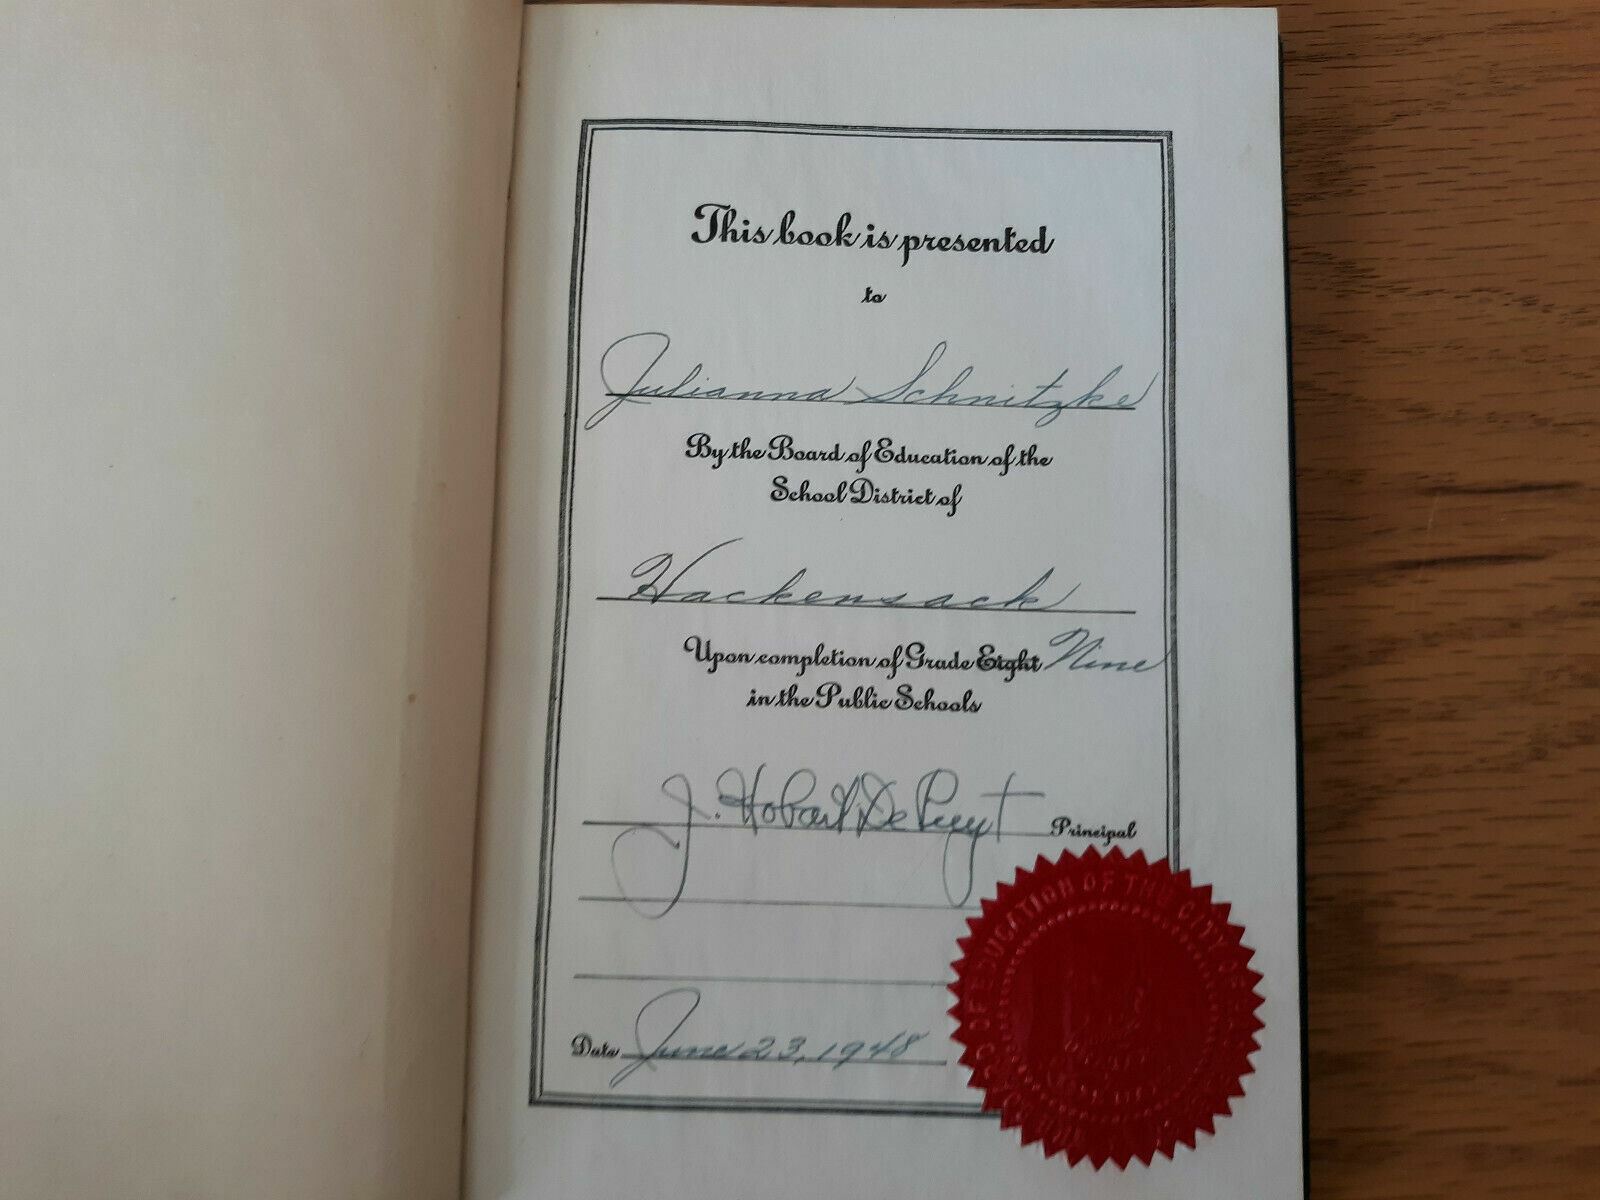 This book is presented
to
Julianna Schnitzke
By the Board of Education of the
School District of
Hackensack
Upon completion of Grade Eight Nine
in the Public Schools
J. Hobart De Puyt
Principal
OF EDUCATION OF THE CITY OF
Date June 23, 1948